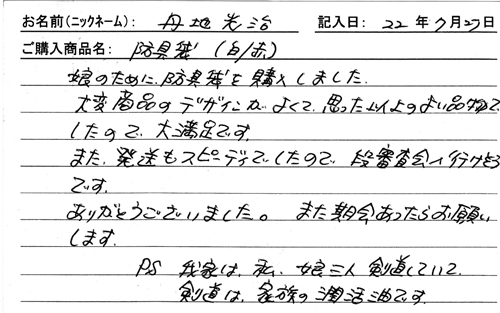 お名前(ニックネーム): 丹地光治 記入日: 22年7月27日
ご購入商品名: 防具袋(白/赤)
娘のために、防具袋を購入しました。
大変商品のデザインがよくて、思った以上のよい品物で
したので、大満足です。
また、発送もスピーディでしたので、段審査会へ行けそう
です。
ありがとうございました。 また機会あったらお願い
します。
PS 我家は、私、娘三人剣道していて、
剣道は、家族の潤活油です。